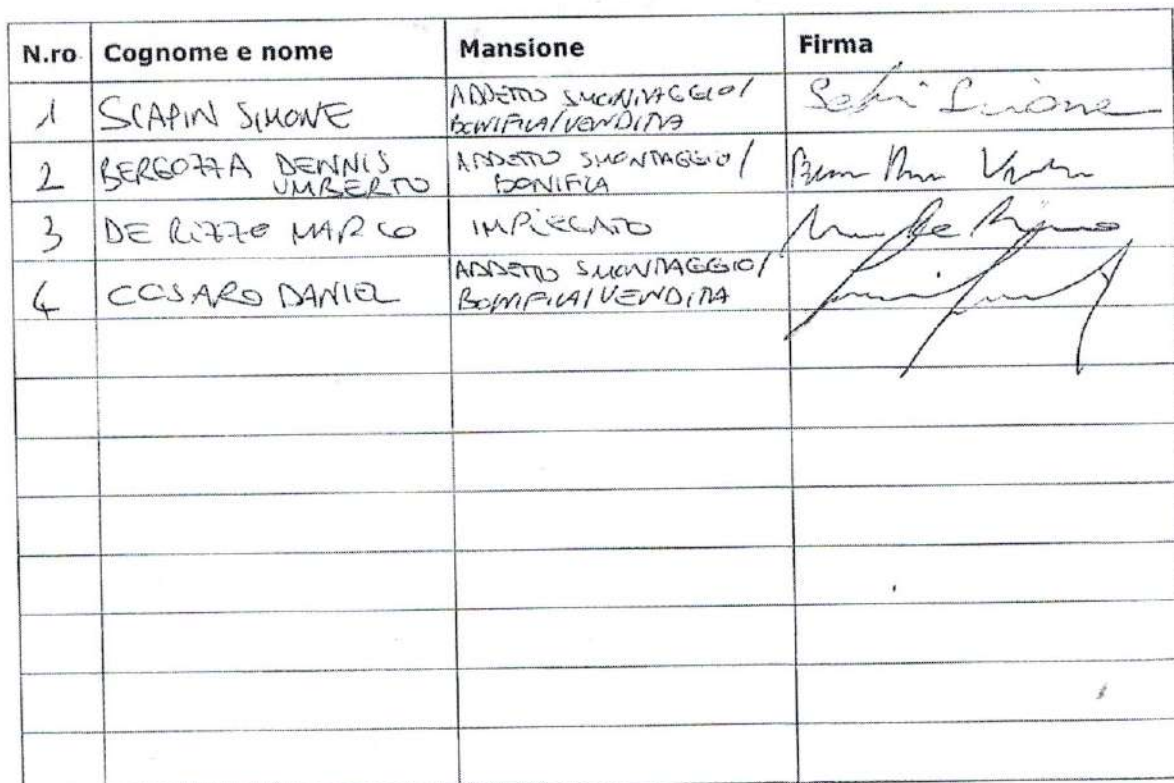 N.ro Cognome e nome Mansione Firma
1 SCAPIN SIMONE ADDETTO SMONTAGGIO/
BONIFICA/VENDITA
2 BERGOZZA DENNIS ADDETTO SMONTAGGIO/
UMBERTO BONIFICA
3 DE RIZZO MARCO IMPIEGATO
4 COSARO DANIEL ADDETTO SMONTAGGIO/
BONIFICA/VENDITA